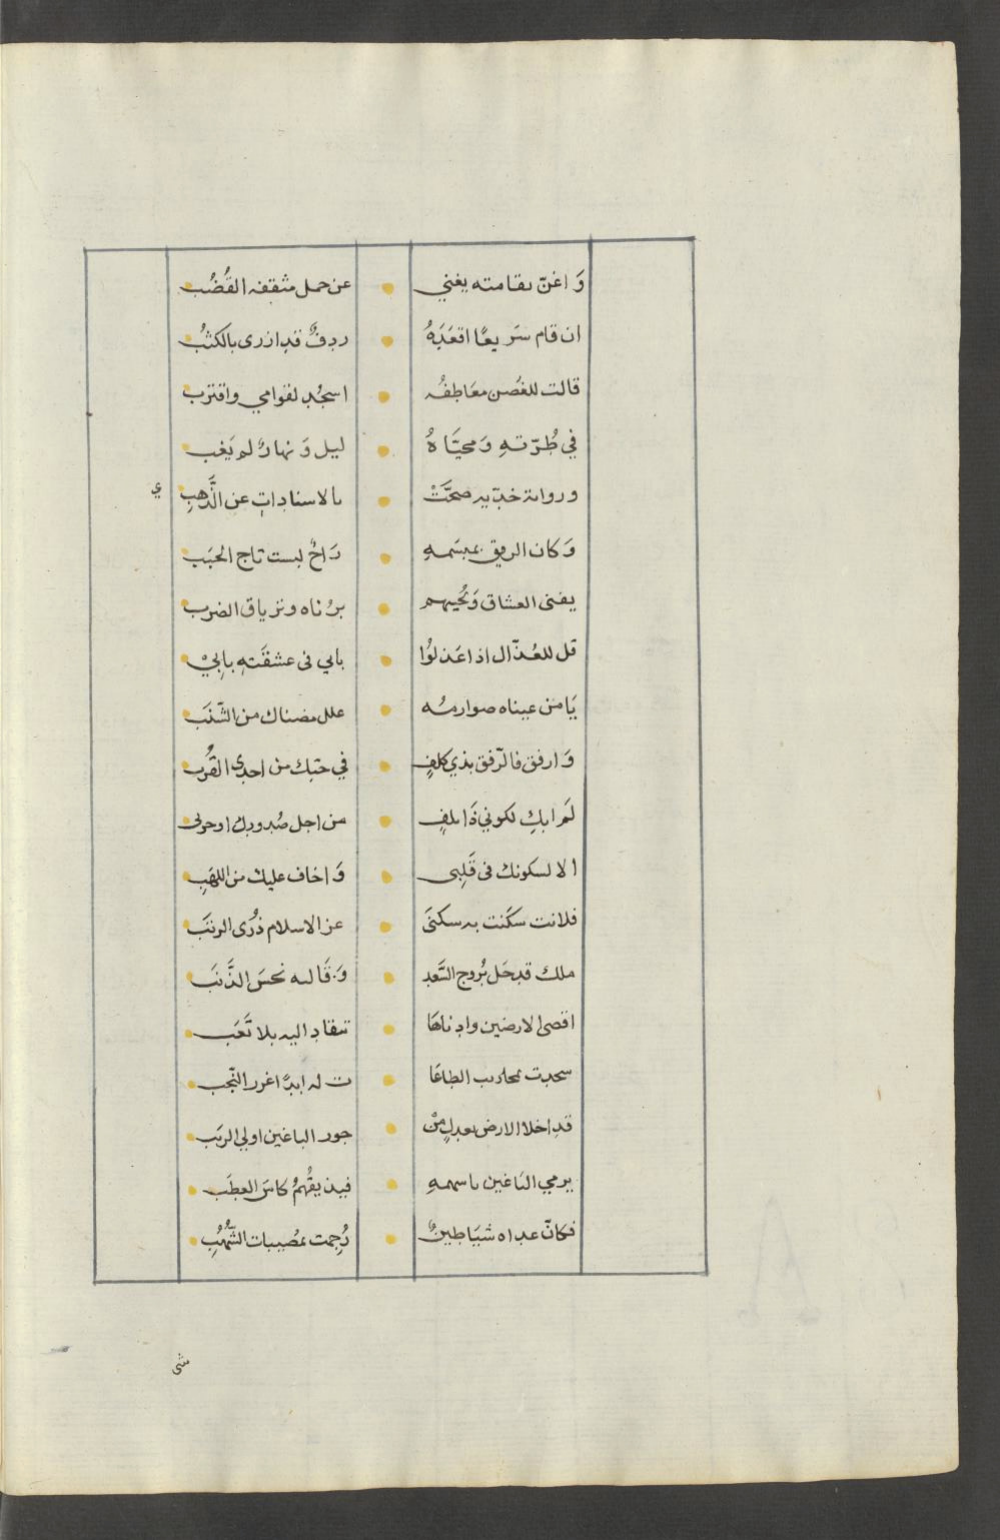 وَاغنّ بقامته يغني عن حمل مثقفه القُضُب
ان قام سَريعًا اقعَدَهُ ردفٌ قد ازرى بالكثبُ
قالت للغُصن معَاطِفُه اسجُد لقوامي واقترب
في طُرّتهِ وَمحيَّاهُ ليل وَنهارٌ لم يَغب
ورواية خدّيه صحَّتْ بالاسنادات عن الذَّهبِ ي
وَكان الريق بمبسَمهِ رَاحٌ لبست تاج الحبَب
يفنى العشاق وَيُحيهم برُناه وترياق الضرب
قل للعُذّال اذا عَذلوُا بابي في عشقَتهِ بابيْ
يَا من عيناه صوارمُه علل مضناك من الشَّنَب
وَارفق فالرّفق بذي كلفٍ في حبّك من احدى القُرب
لَم ابكِ لكوني ذَا تلفٍ من اجل صُدودك اوحربى
الا لسكونك فى قَلبِى وَاخاف عليك من اللهَبِ
فلانت سكَنت به سكنَى عز الاسلام ذُرَى الرتبَ
ملك قد حَل بُروج السَّعد وَرقَا لـه نحسَ الذَّنبَ
اقصى الارضين وادناهَا تنقاد اليه بلا تَعَب
سجدت محاريب الطاعَا ت له ابدًا غرر النّجب
قد اخلا الارض بعدلٍ منْ جور الباغين اولي الريَب
يرمي الباغين باسهمهِ فيذيقُهمُ كاسَ العطَب
فكانّ عداه شيَاطينٌ رُجمت بمُصيبات الشّهُبِ
شى